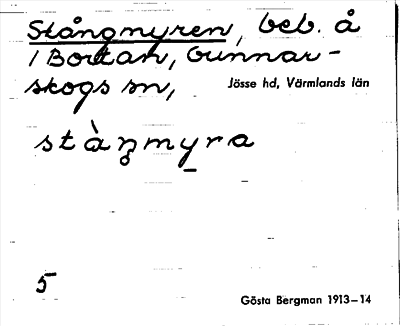 Stångmyren, beb. å
1 Bortan, Gunnar-
skogs sn, Jösse hd, Värmlands län
stàn̥myra
5
Gösta Bergman 1913–14